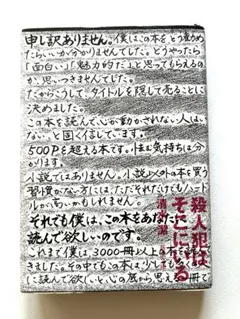 申し訳ありません。僕はこの本をどう勧め
たらいいか分かりませんでした。どうやったら
「面白い」「魅力的だ」と思ってもらえるの
か、思いつきませんでした。
だからこうして、タイトルを隠して売ることに
決めました。
この本を読んで心が動かされない人はい
ない、と固く信じています。
500Pを超える本です。怯む気持ちは分
かります。
小説ではありません。小説以外の本を買う
習慣がない方には、ただそれだけでもハードル
が高いかもしれません。
それでも僕は、この本をあなたに
読んで欲しいのです。
これまで僕は3000冊以上
殺人犯は
そこにいる
清水潔